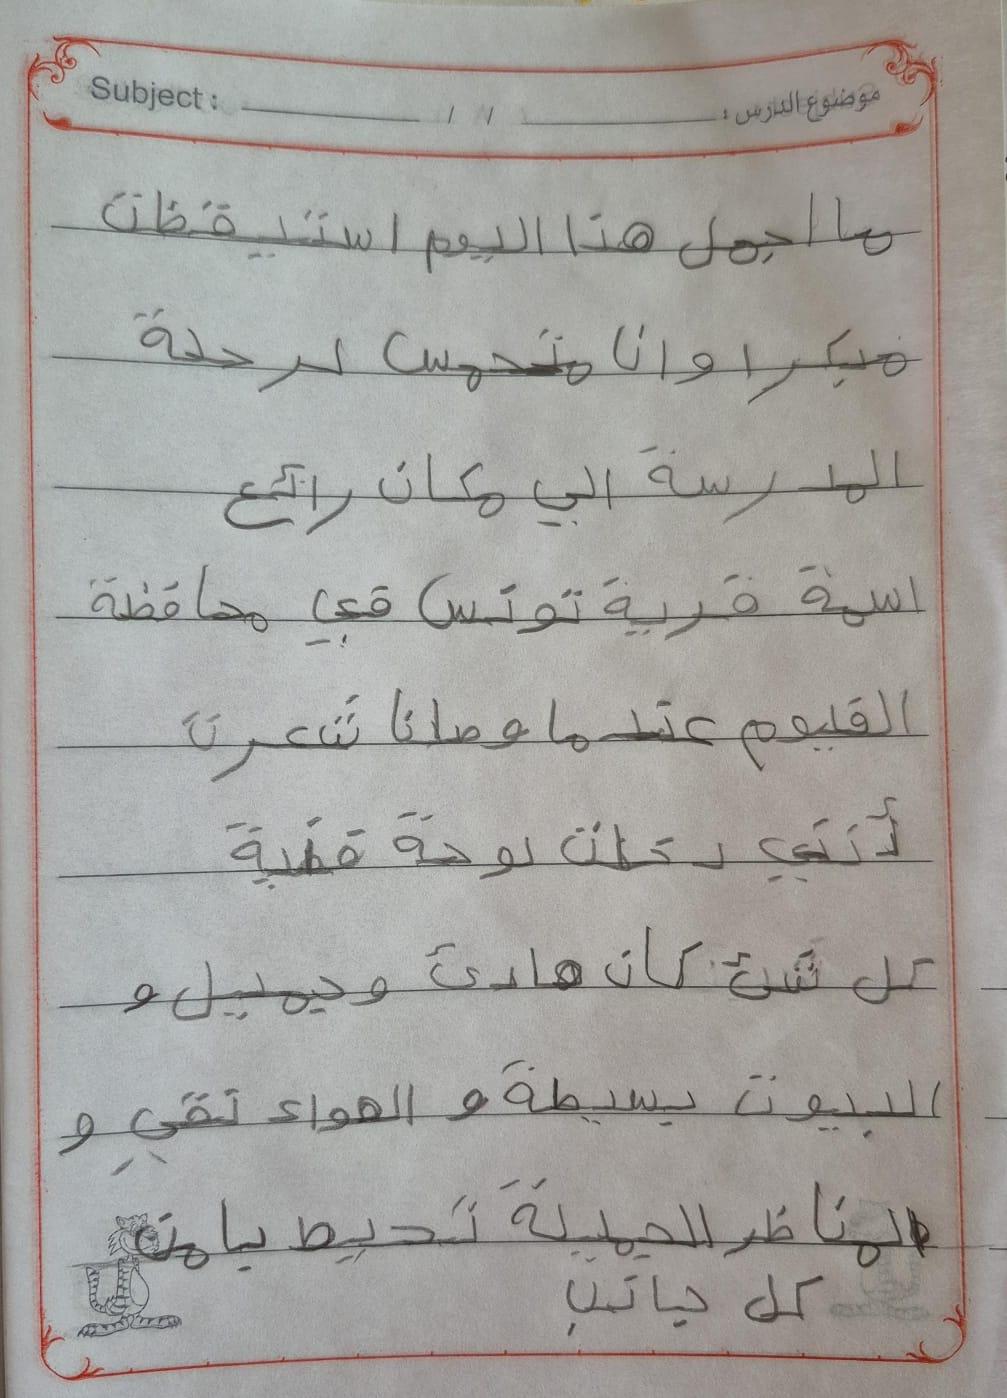 Subject: / / موضوع الدرس:
ما اجمل هذا اليوم استيقظت
مبكرا وانا متحمس لرحلة
المدرسة الي مكان رائع
اسمة قرية تونس في محافظة
الفيوم عندما وصلنا شعرت
أنني دخلت لوحة فنية
كل شئ كان هادئ وجميل و
البيوت بسيطة و الهواء نقي و
المناظر الجميلة تحيط بنا من
كل جانب